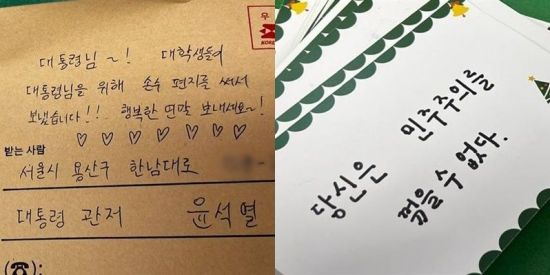 대통령님~! 대학생들이
대통령님을 위해 손수 편지를 써서
보냈습니다!!! 행복한 연말 보내세요~!
♡ ♡ ♡ ♡ ♡ ♡ ♡
받는 사람
서울시 용산구 한남대로
대통령 관저 윤석열
(☎):
우
KOREA
당신은 민주주의를
꺾을 수 없다.